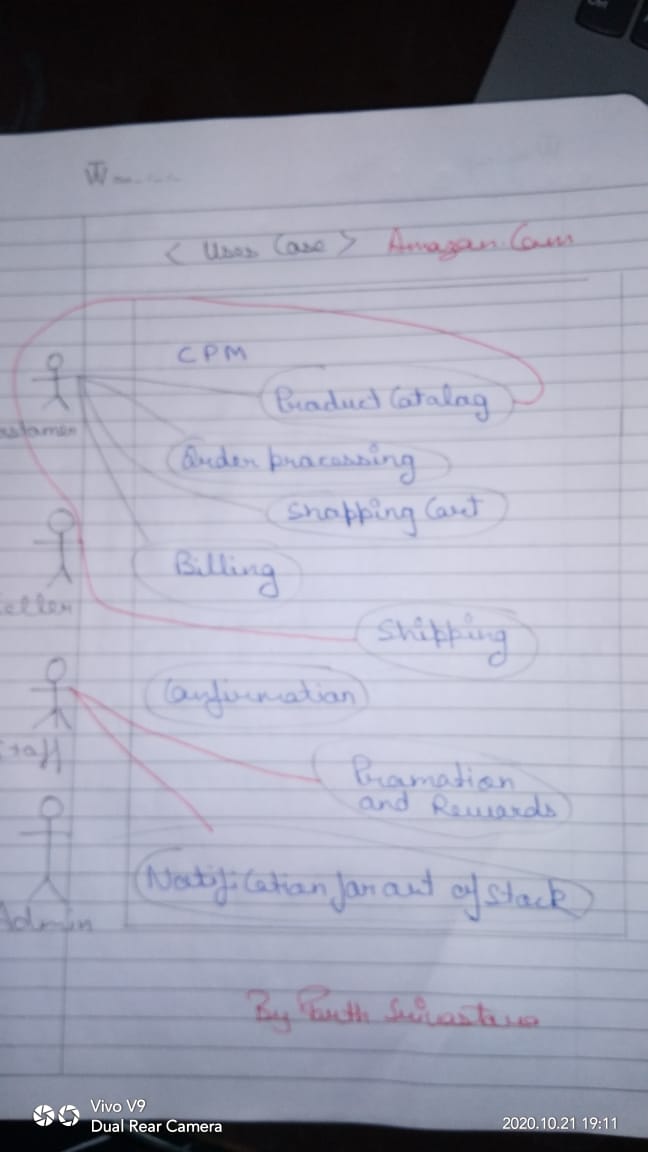 < Uses Case > Amazan.Com
CPM
Product Catalag
ustamer
Order pracessing
Shapping Cart
Billing
eller
Shipping
Confirmation
taff
Pramation
and Rewards
Notification for out of stack
Admin
By Parth Srivastava
Vivo V9
Dual Rear Camera
2020.10.21 19:11